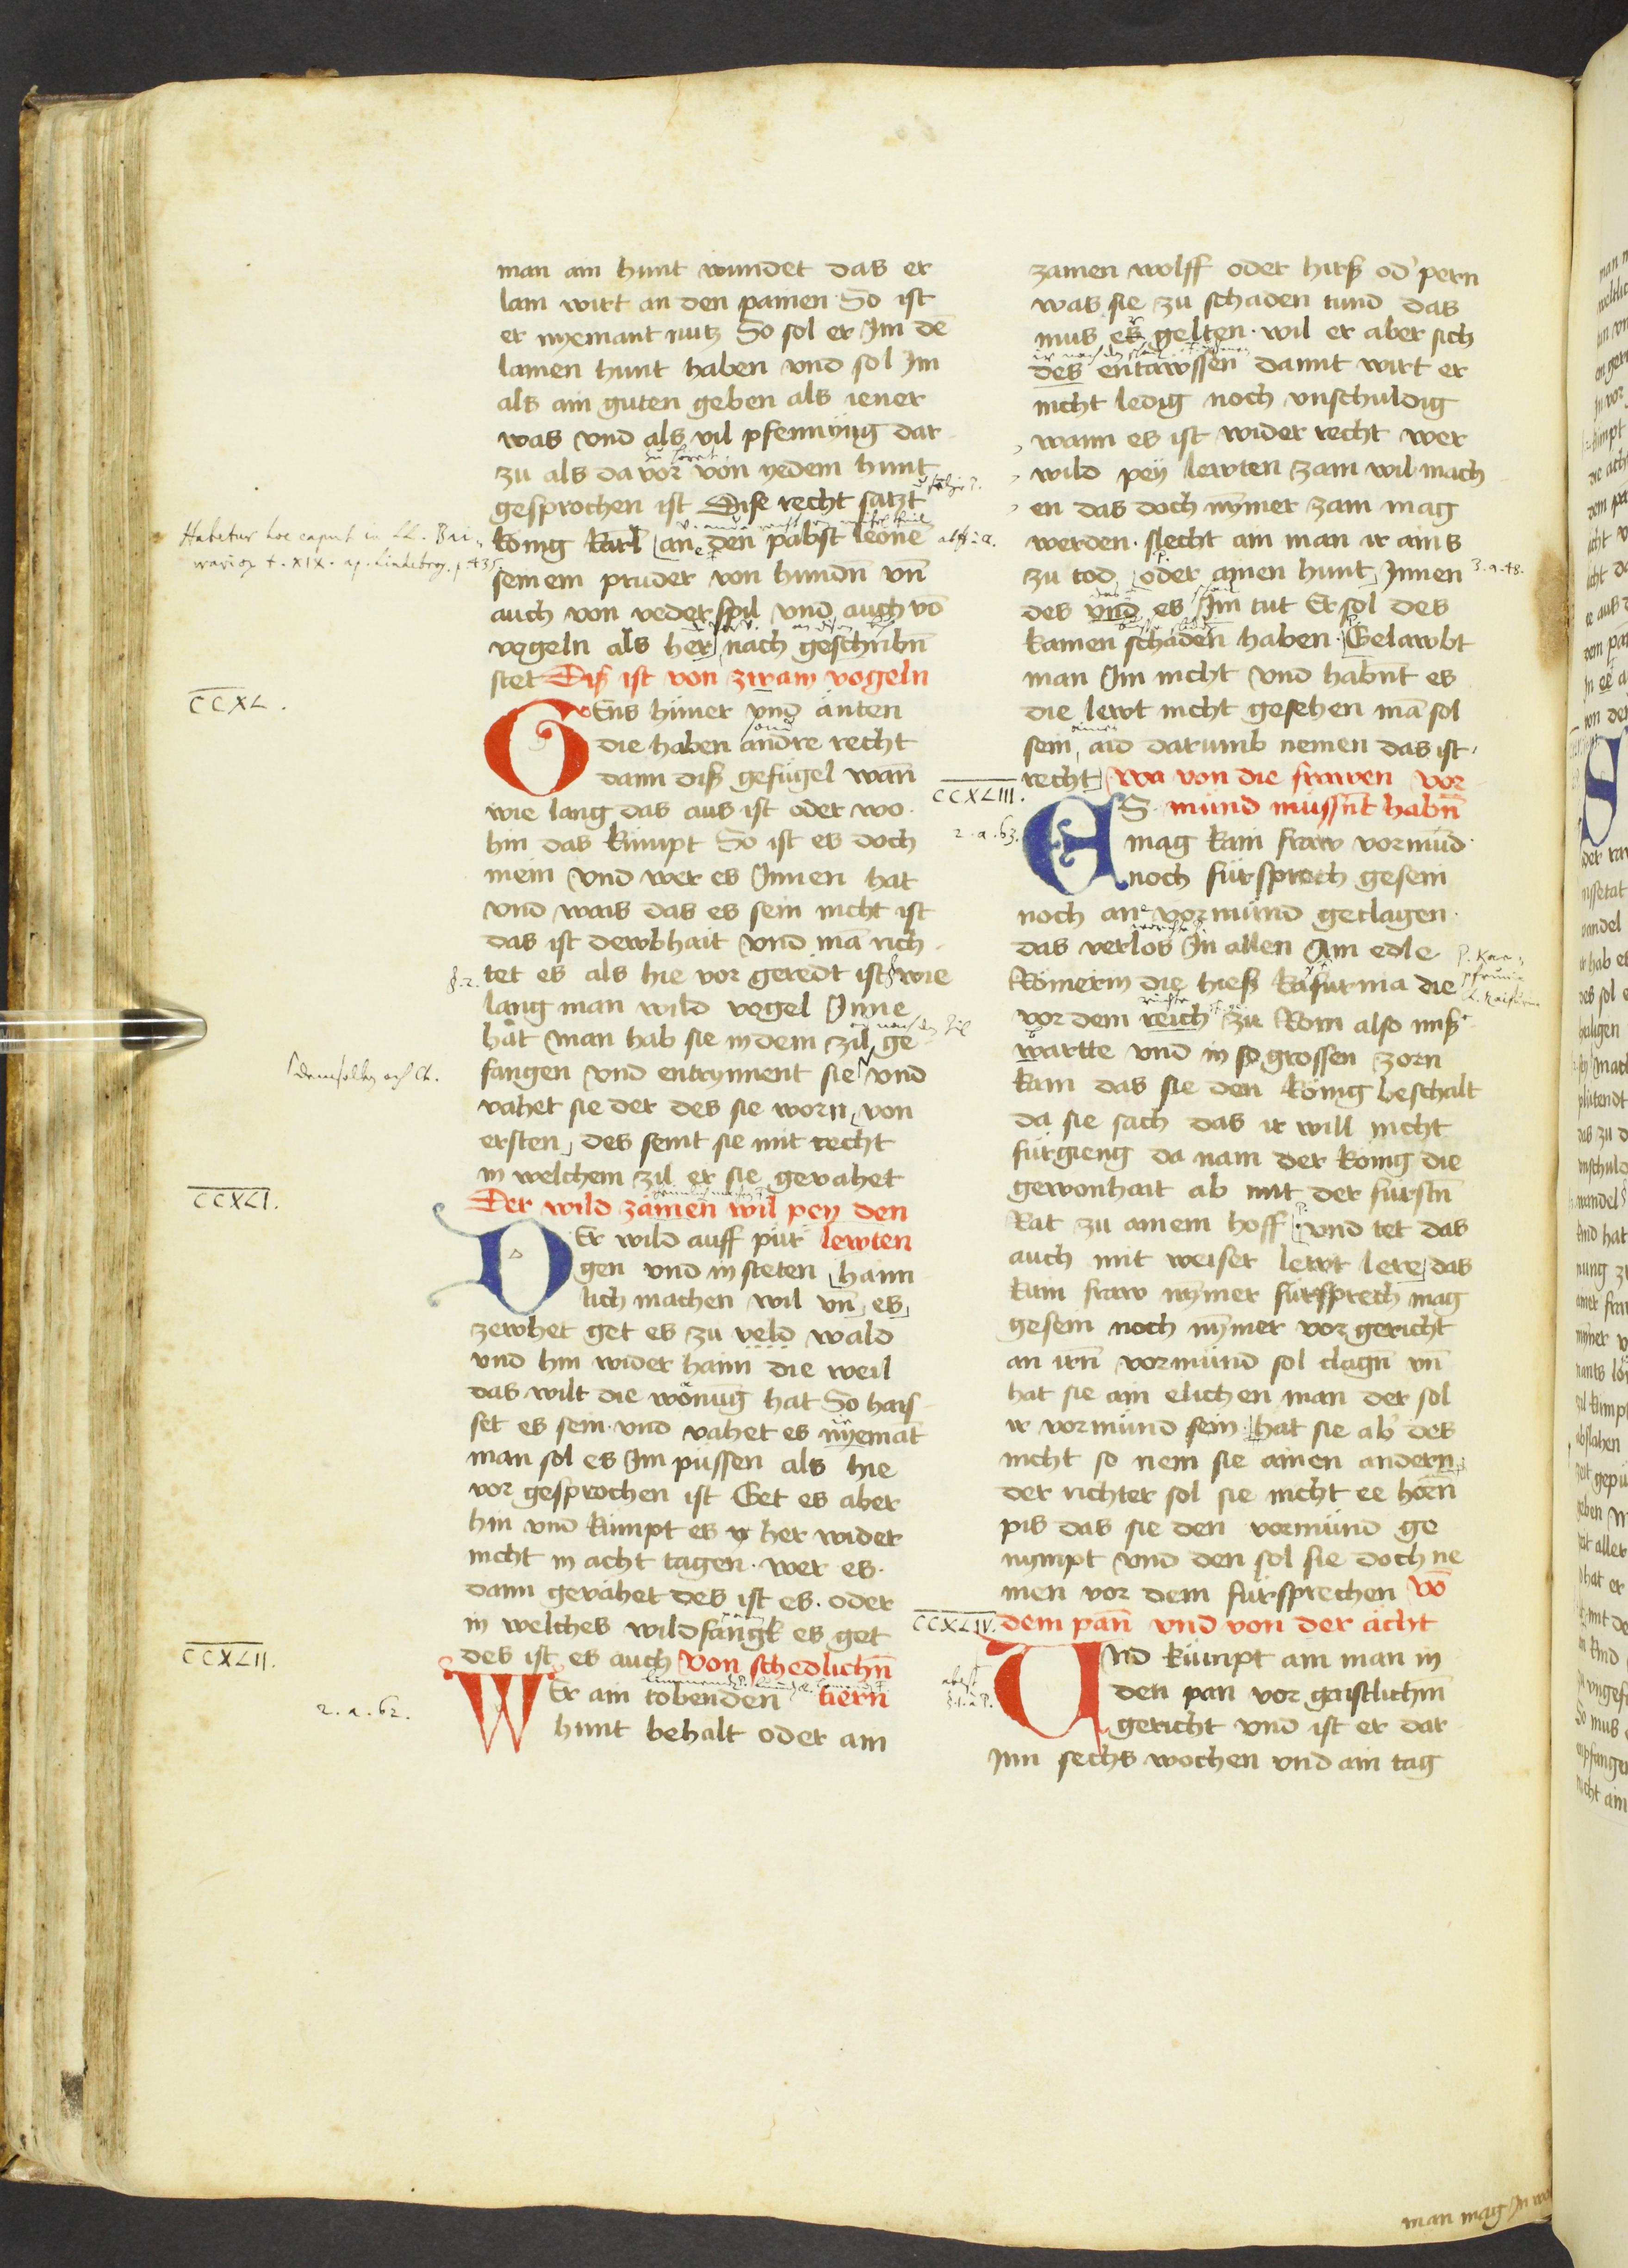 man ain hunt wundet das er
lam wirt an den painen So ist
er nyemant nutz So sol er Im dē
lamen hunt haben vnd sol Im
als ain guten geben als iener
was vnd als vil pfennyng dar
zu als da vor von yedem hunt
gesprochen ist Dise recht satzt
konig karl an den pabst leone
seinem pruder von hundn̄ vn̄
auch von vederspil vnd auch vō
vogeln als her nach geschribn̄
stet Diß ist von zwam vogeln
CCXL.
GEns hüner vnd änten
die haben andre recht
dann diß gefügel wan̄
wie lang das aus ist oder wo
hin das kümpt So ist es doch
mein vnd wer es Innen hat
vnd wais das es sein nicht ist
das ist dewbhait vnd mā rich
tet es als hie vor geredt ist wie
lang man wild vogel Inne
hat man hab sie in dem zil ge
fangen vnd entrynnent sie vnd
vahet sie der des sie worn von
ersten des seint sie mit recht
in welchem zil er sie gevahet
CCXLI.
Der wild zämen wil pey den
lewten
DEr wild auff pür
gen vnd in steten haim
lich machen wil vn̄ es
zewhet get es zu veld wald
vnd hin wider haim die weil
das wilt die wonūg hat So hais
set es sein vnd vahet es nyemāt
man sol es Im püssen als hie
vor gesprochen ist Get es aber
hin vnd kümpt es her wider
nicht in acht tagen wer es
dann gevähet des ist es oder
in welches wildfangk es get
des ist es auch Von schedlichn̄
tiern
CCXLII.
2. a. 62.
WEr ain tobenden
hunt behalt oder ain
zamen wolff oder hirß od' pern
was sie zu schaden tund das
mus er gelten wil er aber sich
des entawssen damit wirt er
nicht ledig noch vnschuldig
wann es ist wider recht wer
wild pey lewten zam wil mach
en das doch nȳmer zam mag
werden slecht ain man ir ains
zu tod oder ainen hunt Innen
3. a. 48.
des vnd es Im tut Er sol des
kainen schaden haben Gelawbt
man Im nicht vnd habn̄t es
die lewt nicht gesehen mā sol
sein aid darumb nemen das ist
recht Wa von die frawen vor
mund müssn̄t habn̄
CCXLIII.
2. a. 63.
ES
mag kain fraw vormūd
noch fürsprech gesein
noch an vormünd geclagen
das verlos In allen Ain edle
Römerin die hieß kafurnia die
vor dem reich zu Rom also miß
wartte vnd in so grossen zorn
kam das sie den konig beschalt
da sie sach das ir will nicht
fürgieng da nam der konig die
gewonhait ab mit der fürstn̄
Rat zu ainem hoff vnd tet das
auch mit weiser lewt lere das
kain fraw nȳmer fürsprech mag
gesein noch nȳmer vor gericht
an irn̄ vormünd sol clagn̄ vn̄
hat sie ain elichen man der sol
ir vormünd sein hat sie ab' des
nicht so nem sie ainen andern
der richter sol sie nicht ee hörn̄
pis das sie den vormünd ge
nympt vnd den sol sie doch ne
men vor dem fürsprechen Vō
CCXLIV.
dem pan̄ vnd von der ächt
Vnd kümpt ain man in
den pan vor gaistlichm̄
gericht vnd ist er dar
Inn sechs wochen vnd ain tag
man mag In